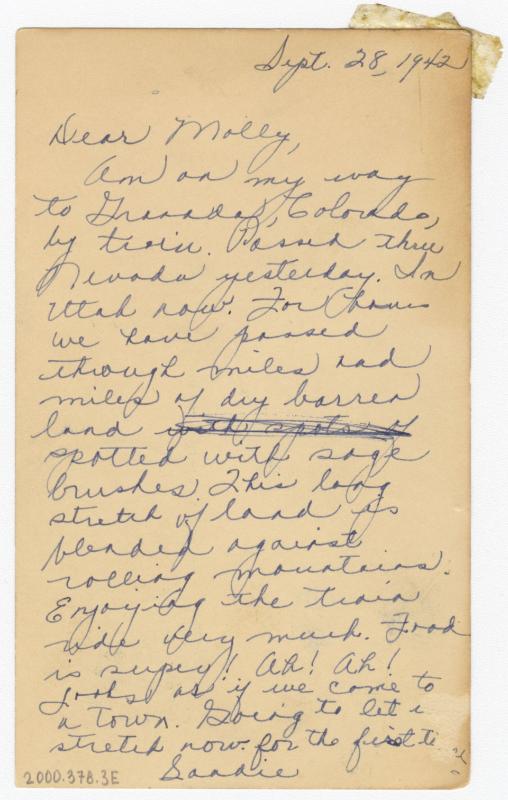 Sept. 28, 1942
Dear Molly,
Am on my way
to Granada, Colorado,
by train. Passed thru
Nevada yesterday. In
Utah now. For hours
we have passed
through miles and
miles of dry barren
land with spots of
spotted with sage
brushes. This long
stretch of land is
blended against
rolling mountains.
Enjoying the train
ride very much. Food
is super! Ah! Ah!
Looks as if we come to
a town. Going to let us
stretch now for the first
Sandie
2000.378.3E